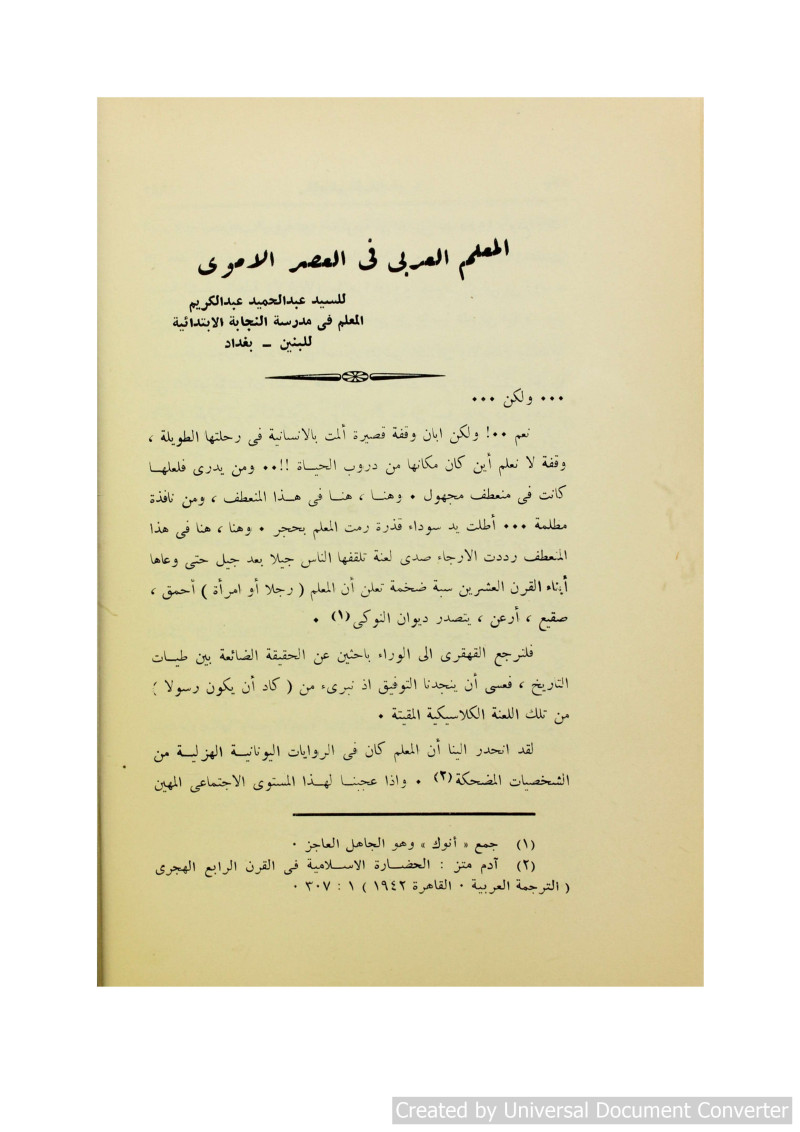 المعلم العربى فى العصر الاموى
للسيد عبدالحميد عبدالكريم
المعلم فى مدرسة النجابة الابتدائية
للبنين – بغداد
••• ولكن •••
نعم ••! ولكن ابان وقفة قصيرة ألمت بالانسانية فى رحلتها الطويلة ،
وقفة لا نعلم أين كان مكانها من دروب الحيـاة !!•• ومن يدرى فلعلهـا
كانت فى منعطف مجهول • وهنـا ، هنـا فى هـذا المنعطف ، ومن نافذة
مظلمة ••• أطلت يد سوداء قذرة رمت المعلم بحجر • وهنا ، هنا فى هذا
المنعطف رددت الارجاء صدى لعنة تلقفها الناس جيلا بعد جيل حتى وعاها
أبناء القرن العشرين سبة ضخمة تعلن أن المعلم ( رجلا أو امرأة ) أحمق ،
صقيع ، أرعن ، يتصدر ديوان النوكى(١) •
فلنرجع القهقرى الى الوراء باحثين عن الحقيقة الضائعة بين طيـات
التاريخ ، فعسى أن ينجدنا التوفيق اذ نبرىء من ( كاد أن يكون رسولا )
من تلك اللعنة الكلاسيكية المقيتة •
لقد انحدر الينا أن المعلم كان فى الروايات اليونانيـة الهزليـة من
الشخصيات المضحكة(٢) • واذا عجبنـا لهـذا المستوى الاجتماعى المهين
(١) جمع « أنوك » وهو الجاهل العاجز •
(٢) آدم متز : الحضـارة الاسـلامية فى القرن الرابع الهجرى
( الترجمة العربية • القاهرة ١٩٤٢ ) ١ : ٣٠٧ •
Created by Universal Document Converter